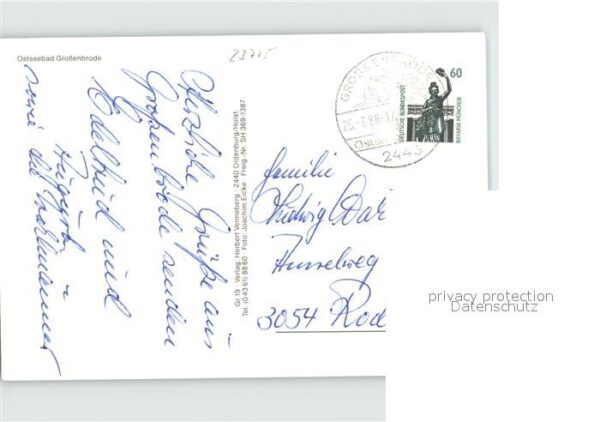 Ostseebad Großenbrode
23715
Herzliche Grüße aus
Großenbrode senden
Edeltrud und
sowie die
Gr 19 Verlag: Herbert Venneberg · 2440 Oldenburg/Holst.
Tel. (0 43 61) 88 60 · Foto: Joachim Eicke · Freig.-Nr. SH 369-1387
GROSSENBRODE
2443
60
DEUTSCHE BUNDESPOST
BAVARIA MÜNCHEN
Familie
Ludwig
3054 Rod
privacy protection
Datenschutz